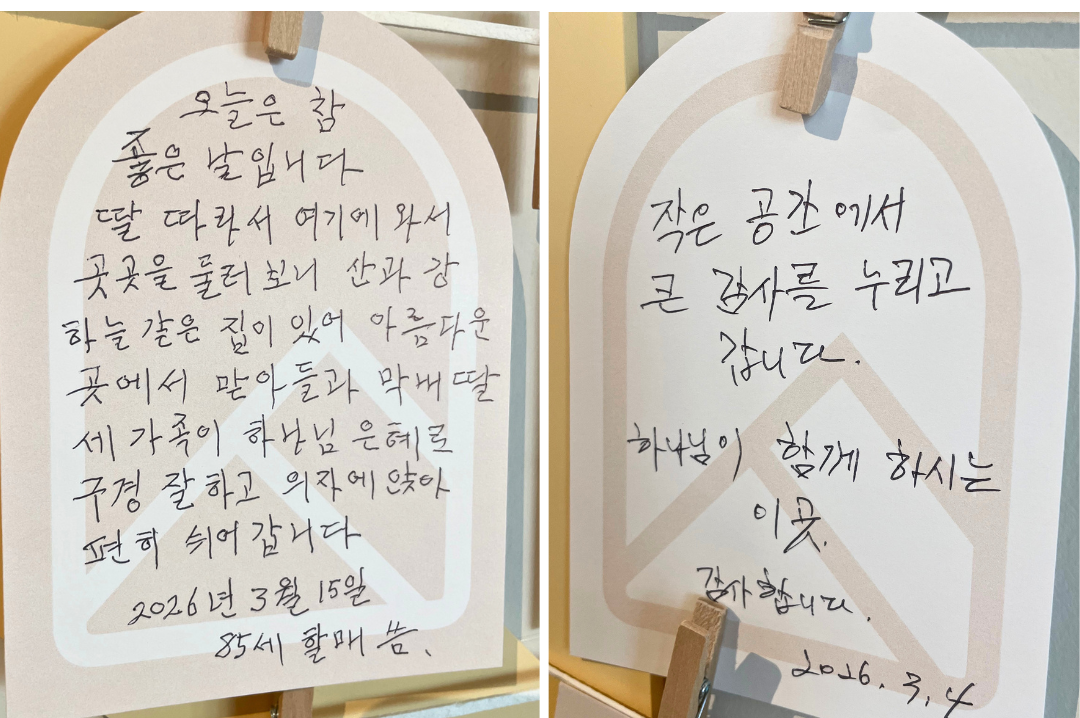 오늘은 참
좋은 날입니다
딸 따라서 여기에 와서
곳곳을 둘러보니 산과 강
하늘 같은 집이 있어 아름다운
곳에서 맏아들과 막내딸
세 가족이 하나님 은혜로
구경 잘하고 의자에 앉아
편히 쉬어 갑니다
2026년 3월 15일
85세 할매 씀.
작은 공간에서
큰 감사를 누리고
갑니다.
하나님이 함께 하시는
이곳.
감사합니다.
2026. 3. 4